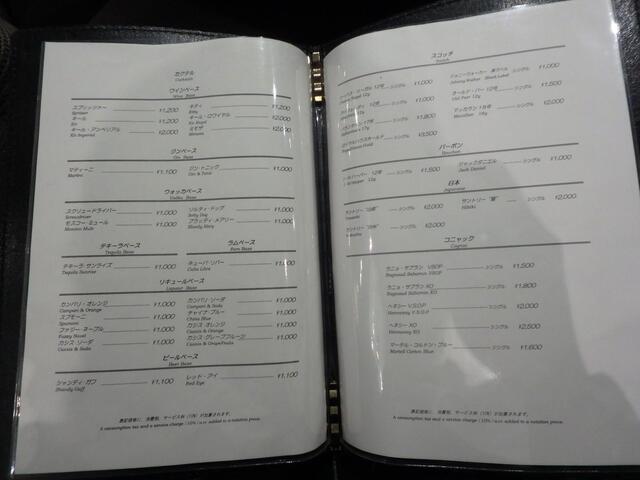 カクテル
Cocktails
ワインベース
Wine Base
スプリッツァー ¥1,200
Spritzer
キール ¥1,200
Kir
キール・アンペリアル ¥2,000
Kir Imperial
キティ ¥1,200
Kitty
キール・ロワイヤル ¥2,000
Kir Royal
ミモザ ¥2,000
Mimosa
ジンベース
Gin Base
マティーニ ¥1,100
Martini
ジン・トニック ¥1,000
Gin & Tonic
ウォッカベース
Vodka Base
スクリュードライバー ¥1,000
Screwdriver
モスコー・ミュール ¥1,000
Moscow Mule
ソルティ・ドッグ ¥1,000
Salty Dog
ブラッディ・メアリー ¥1,000
Bloody Mary
テキーラベース
Tequila Base
テキーラ・サンライズ ¥1,000
Tequila Sunrise
ラムベース
Rum Base
キューバ・リバー ¥1,000
Cuba Libre
リキュールベース
Liqueur Base
カンパリ・オレンジ ¥1,000
Campari & Orange
スプモーニ ¥1,000
Spumoni
ファジー・ネーブル ¥1,000
Fuzzy Navel
カシス・ソーダ ¥1,000
Cassis & Soda
カンパリ・ソーダ ¥1,000
Campari & Soda
チャイナ・ブルー ¥1,000
China Blue
カシス・オレンジ ¥1,000
Cassis & Orange
カシス・グレープフルーツ ¥1,000
Cassis & Grapefruits
ビールベース
Beer Base
シャンディ・ガフ ¥1,100
Shandy Gaff
レッド・アイ ¥1,100
Red Eye
表記価格に、消費税、サービス料(10%)が加算されます。
A consumption tax and a service charge (10%) are added to a notation price.
スコッチ
Scotch
12年 シングル ¥1,000
12y
ジョニーウォーカー 黒ラベル シングル ¥1,000
Johnny Walker Black Label
12年 シングル ¥1,000
12y
オールド・パー 12年 シングル ¥1,500
Old Parr 12y
17年 シングル ¥1,800
17y
マッカラン 18年 シングル ¥2,000
18y
シングル ¥3,500
バーボン
Bourbon
12年 シングル ¥1,500
12y
ジャックダニエル シングル ¥1,000
Jack Daniel
日本
Japanese
サントリー シングル ¥2,000
サントリー "響" シングル ¥2,000
Hibiki
サントリー シングル ¥2,000
コニャック
Cognac
ラニョ・サブラン VSOP シングル ¥1,500
Ragnaud Sabourin VSOP
ラニョ・サブラン XO シングル ¥1,800
Ragnaud Sabourin XO
ヘネシー V.S.O.P シングル ¥2,000
Hennessy V.S.O.P
ヘネシー XO シングル ¥2,500
Hennessy XO
マーテル・コルドン・ブルー シングル ¥1,600
Martell Cordon Blue
表記価格に、消費税、サービス料(10%)が加算されます。
A consumption tax and a service charge (10%) are added to a notation price.